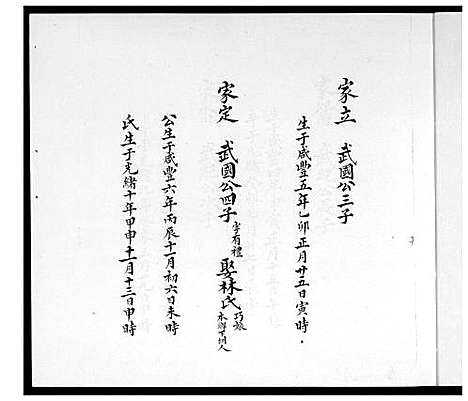 家立 武國公三子
生于咸豐五年乙卯正月廿五日寅時
家定 武國公四子 字有禮 娶林氏 巧娘
公生于咸豐六年丙辰十一月初六日未時
氏生于光緒十年甲申十一月十三日申時